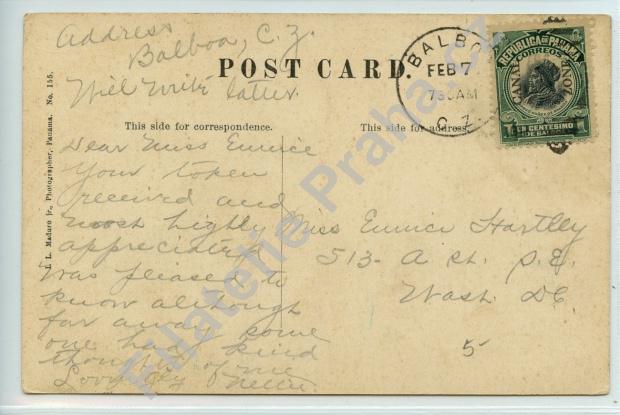 Address
Balboa, C.Z.
Will write later.
POST CARD.
This side for correspondence.
This side for address.
I. L. Maduro jr., Photographer, Panama. No. 155.
BALBO
FEB 7
730AM
C. Z.
REPUBLICA DE PANAMA
CORREOS
CANAL ZONE
UN CENTESIMO
DE BALBOA
Dear Miss Eunice
Your token
received and
most highly
appreciated
Was pleased to
know although
far away some
one had kind
thoughts of me
Nellie.
Miss Eunice Hartley
513- A St. S.E.
Wash. D.C.
5
Filatelie Praha.cz